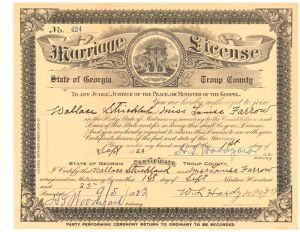 No. 424
Marriage License
State of Georgia Troup County
TO ANY JUDGE, JUSTICE OF THE PEACE, OR MINISTER OF THE GOSPEL.
You are hereby authorized to join
Wallace Strickland Miss Janie Farrow
in the Holy State of Matrimony according to the Constitution and
Laws of this State and for so doing this shall be your License
And you are hereby required to return this License to me with your
Certificate hereon of the fact and date of the Marriage.
1st
Sept 23
CERTIFICATE
STATE OF GEORGIA TROUP COUNTY,
I Certify that Wallace Strickland and Miss Janie Farrow
were joined in Matrimony by me this 1st day of Sept
Nineteen Hundred and
23
Recorded 9/5 1923
W. L. Hardy
PARTY PERFORMING CEREMONY RETURN TO ORDINARY TO BE RECORDED